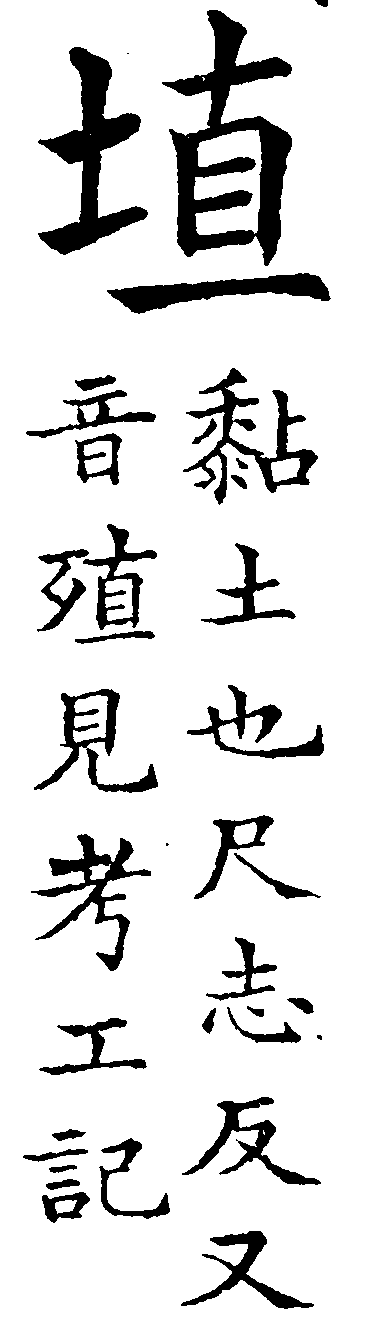 埴
黏土也尺志反又
音殖見考工記